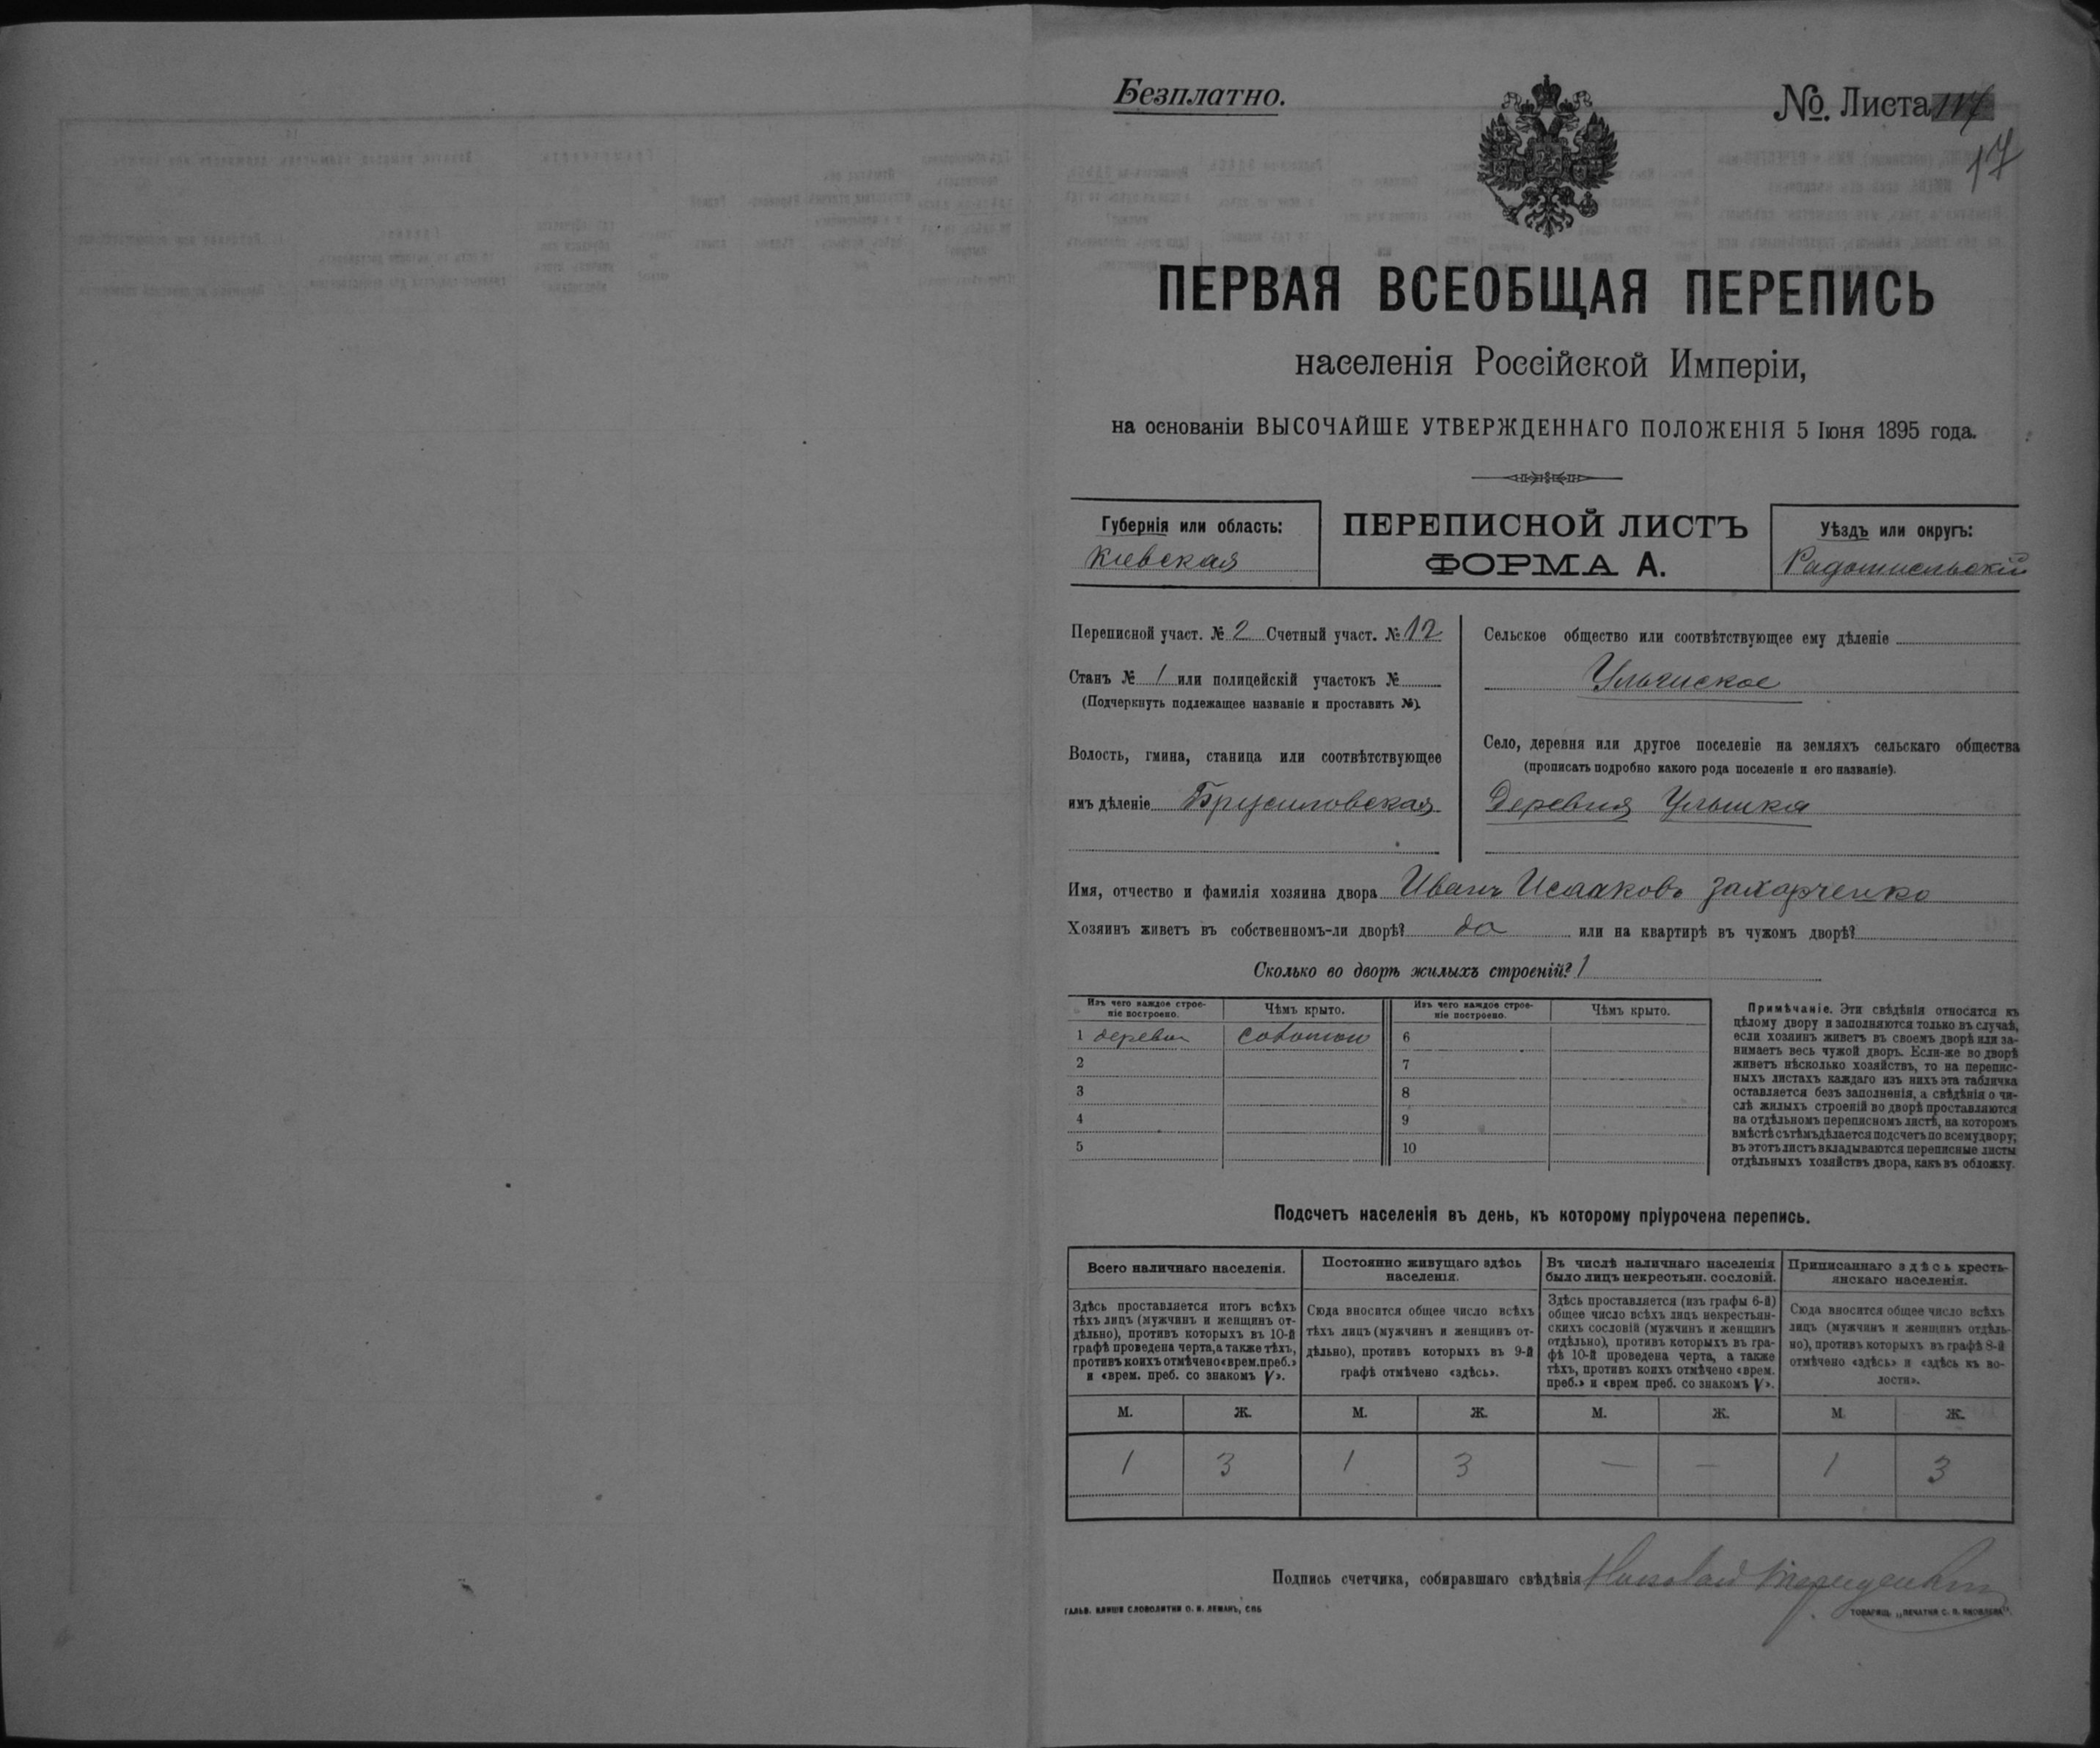 Безплатно.
№. Листа
17
ПЕРВАЯ ВСЕОБЩАЯ ПЕРЕПИСЬ
населенія Россійской Имперіи,
на основаніи ВЫСОЧАЙШЕ УТВЕРЖДЕННАГО ПОЛОЖЕНІЯ 5 Іюня 1895 года.
Губернія или область:
Кіевская
ПЕРЕПИСНОЙ ЛИСТЪ
ФОРМА А.
Уѣздъ или округъ:
Радомысльскій
Переписной участ. № 2 Счетный участ. № 12
Станъ № 1 или полицейскій участокъ №
(Подчеркнуть подлежащее названіе и проставить №).
Волость, гмина, станица или соотвѣтствующее
имъ дѣленіе Брусиловская
Сельское общество или соотвѣтствующее ему дѣленіе
Село, деревня или другое поселеніе на земляхъ сельскаго общества
(прописать подробно какого рода поселеніе и его названіе).
Деревня Ульшка
Имя, отчество и фамилія хозяина двора Иванъ Исааковъ Захарченко
Хозяинъ живетъ въ собственномъ-ли дворѣ? да или на квартирѣ въ чужомъ дворѣ?
Сколько во дворѣ жилыхъ строеній? 1
Изъ чего каждое строе-
ніе построено.
Чѣмъ крыто.
Изъ чего каждое строе-
ніе построено.
Чѣмъ крыто.
1 дерева соломою 6
2 7
3 8
4 9
5 10
Примѣчаніе. Эти свѣдѣнія относятся къ
цѣлому двору и заполняются только въ случаѣ,
если хозяинъ живетъ въ своемъ дворѣ или за-
нимаетъ весь чужой дворъ. Если-же во дворѣ
живетъ нѣсколько хозяйствъ, то на перепис-
ныхъ листахъ каждаго изъ нихъ эта табличка
оставляется безъ заполненія, а свѣдѣнія о чи-
слѣ жилыхъ строеній во дворѣ проставляются
на отдѣльномъ переписномъ листѣ, на которомъ
вмѣстѣ съ тѣмъ дѣлается подсчетъ по всему двору;
въ этотъ листъ вкладываются переписные листы
отдѣльныхъ хозяйствъ двора, какъ въ обложку.
Подсчетъ населенія въ день, къ которому пріурочена перепись.
Всего наличнаго населенія.
Постоянно живущаго здѣсь
населенія.
Въ числѣ наличнаго населенія
было лицъ некрестьян. сословій.
Приписаннаго здѣсь кресть-
янскаго населенія.
Здѣсь проставляется итогъ всѣхъ
тѣхъ лицъ (мужчинъ и женщинъ от-
дѣльно), противъ которыхъ въ 10-й
графѣ проведена черта, а также тѣхъ,
противъ коихъ отмѣчено «врем. преб.»
и «врем. преб. со знакомъ V».
Сюда вносится общее число всѣхъ
тѣхъ лицъ (мужчинъ и женщинъ от-
дѣльно), противъ которыхъ въ 9-й
графѣ отмѣчено «здѣсь».
Здѣсь проставляется (изъ графы 6-й)
общее число всѣхъ лицъ некрестьян-
скихъ сословій (мужчинъ и женщинъ
отдѣльно), противъ которыхъ въ гра-
фѣ 10-й проведена черта, а также
тѣхъ, противъ коихъ отмѣчено «врем.
преб.» и «врем преб. со знакомъ V».
Сюда вносится общее число всѣхъ
лицъ (мужчинъ и женщинъ отдѣль-
но), противъ которыхъ въ графѣ 8-й
отмѣчено «здѣсь» и «здѣсь къ во-
лости».
М. Ж. М. Ж. М. Ж. М. Ж.
1 3 1 3 — — 1 3
Подпись счетчика, собиравшаго свѣдѣнія
ГАЛЬВ. КЛИШЕ СЛОВОЛИТНИ О. И. ЛЕМАНЪ, СПБ
ТОВАРИЩ. „ПЕЧАТНЯ С. П. ЯКОВЛЕВА".